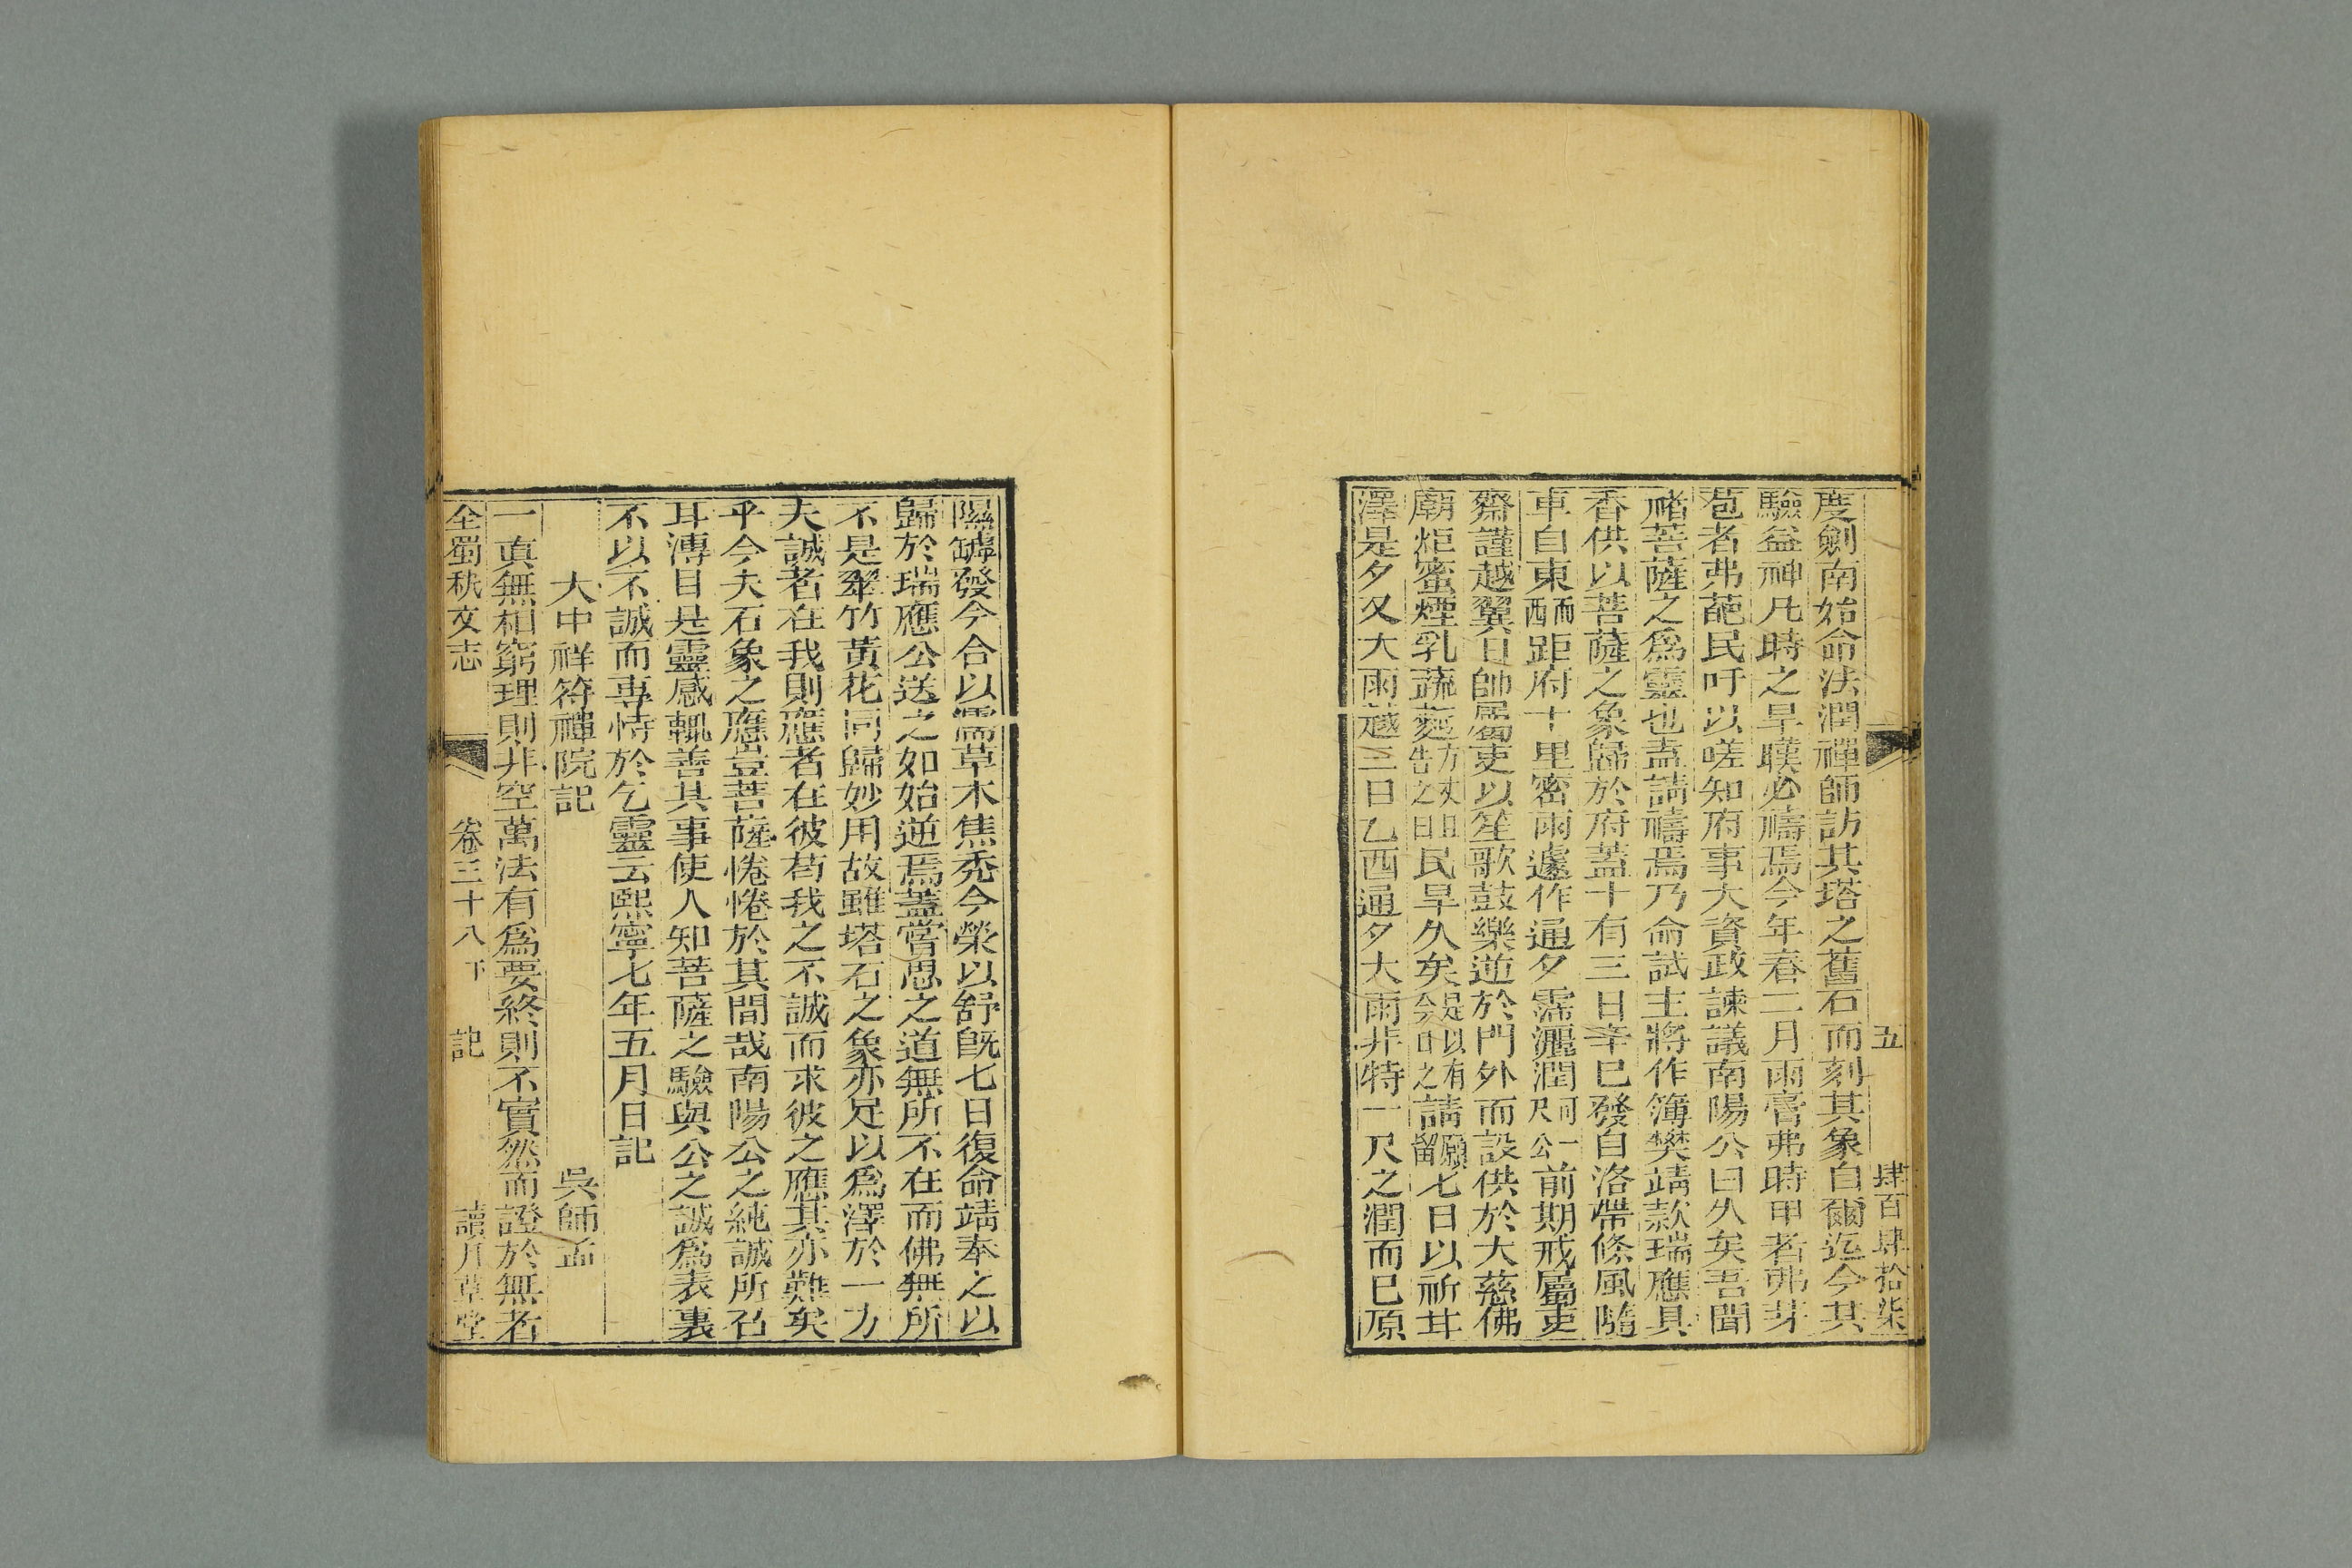 五 肆百肆拾柒
度劍南始命法潤禪師訪其塔之舊石而刻其象自爾迄今其
驗益神凡時之旱暵必禱焉今年春二月雨膏弗時甲者弗芽
苞者弗葩民吁以嗟知府事大資政諫議南陽公曰久矣吾聞
禇菩薩之爲靈也盍請禱焉乃命試主將作簿樊靖款瑞應具
香供以菩薩之象歸於府蓋十有三日辛巳發自洛帶絛風隨
車自東而西距府十里密雨遽作通夕霈灑潤可一尺公前期戒屬吏
齋謹越翼日帥屬吏以笙歌鼓樂逆於門外而設供於大慈佛
廟炬蜜煙乳蔬薧方丈且告之曰民旱久矣是以有今日之請願留七日以祈甘
澤是夕又大雨越三日乙酉通夕大雨非特一尺之潤而已原
隰罅發今合以濡草木焦禿今榮以舒旣七日復命靖奉之以
歸於瑞應公送之如始逆焉蓋嘗思之道無所不在而佛無所
不是翠竹黃花同歸妙用故雖塔石之象亦足以爲澤於一方
夫誠者在我則應者在彼苟我之不誠而求彼之應其亦難矣
乎今夫石象之應豈菩薩惓惓於其間哉南陽公之純誠所召
耳漙目是靈感輒善其事使人知菩薩之驗與公之誠爲表裏
不以不誠而專恃於乞靈云熙寧七年五月日記
大中祥符禪院記 吳師孟
一眞無相窮理則非空萬法有爲要終則不實然而證於無者
全蜀秇文志 卷三十八下 記 讀月草堂